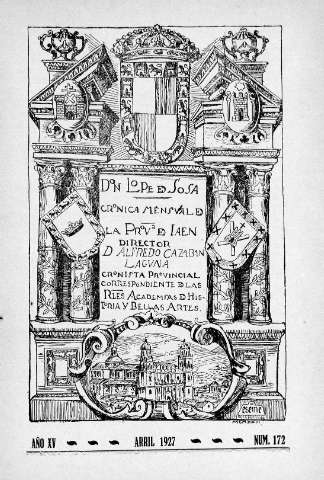 DON LOPE D SOSA
CRONICA MENSVAL D
LA PROVA D IAEN
DIRECTOR
D ALFREDO CAZABAN
LAGUNA
CRONISTA PROVINCIAL
CORRESPONDIENTE D LAS
RLES ACADEMIAS D HIS-
TORIA Y BELLAS ARTES.
AÑO XV
ABRIL 1927
NUM. 172